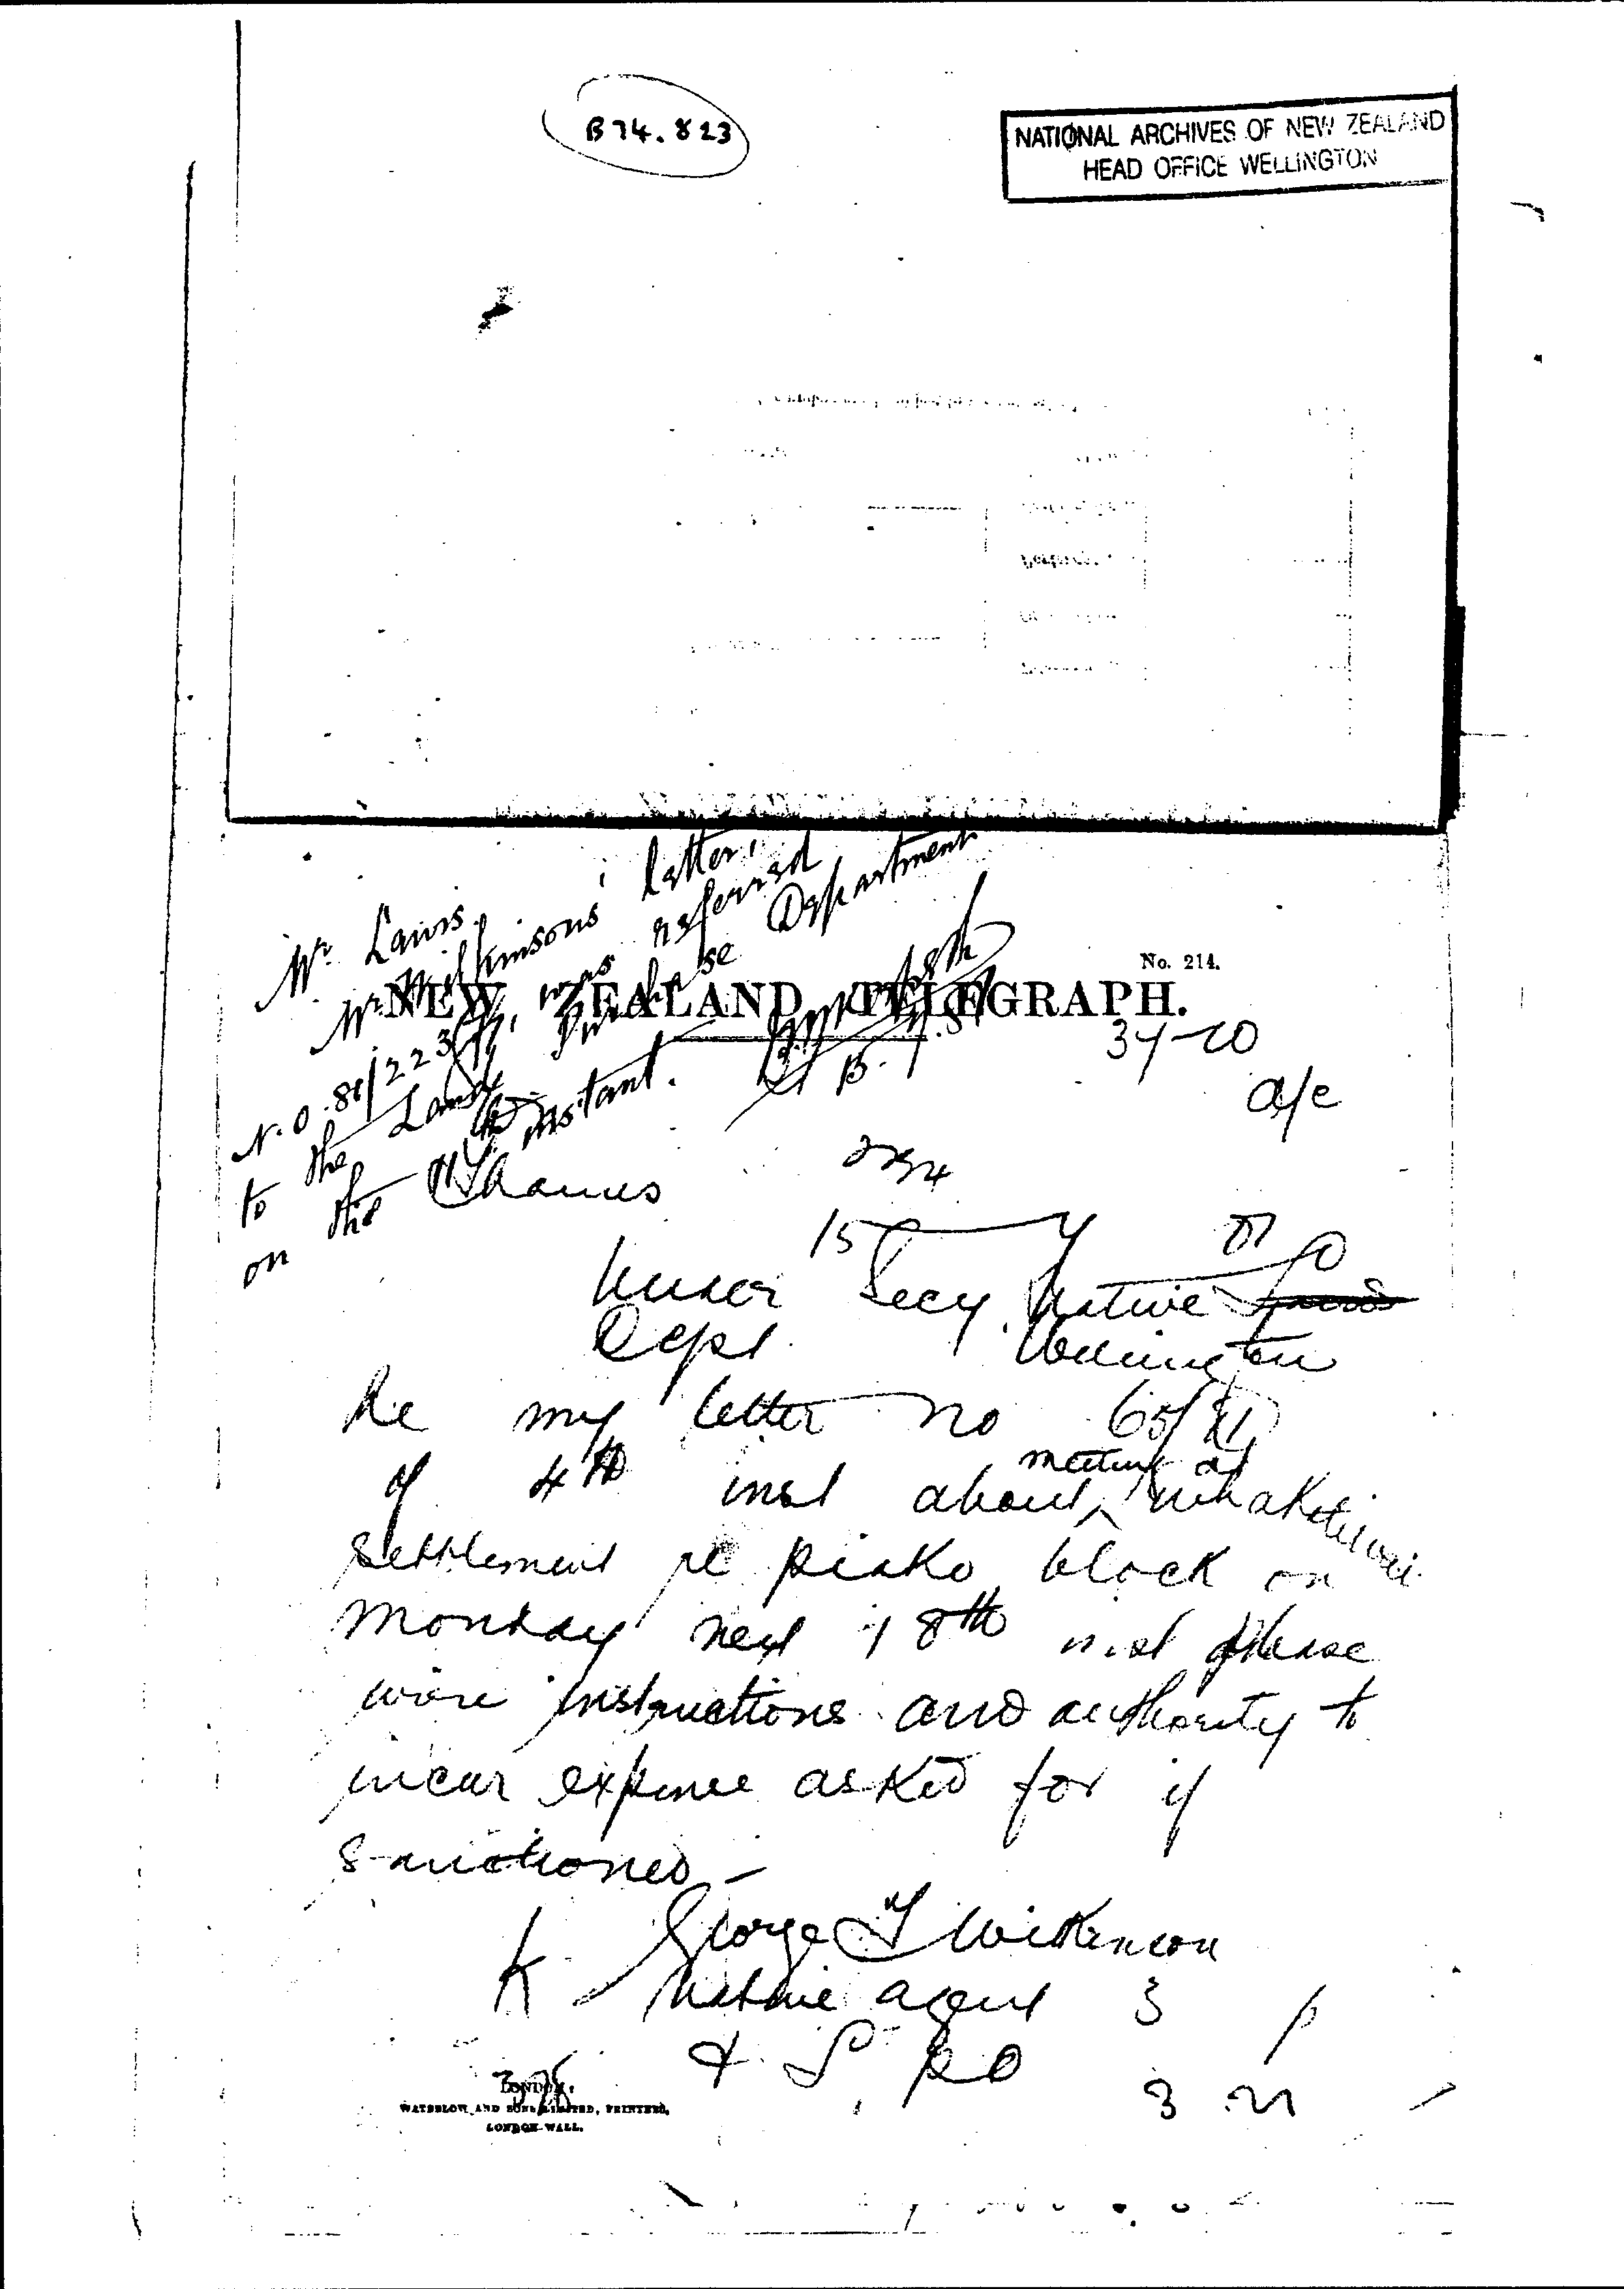 B74.823
NATIONAL ARCHIVES OF NEW ZEALAND
HEAD OFFICE WELLINGTON
Mr Lewis.
Mr Wilkinsons letter,
N.O. 81/223 was referred
to the Land Purchase Department
on the instant.
No. 214.
NEW ZEALAND TELEGRAPH.
34-20
a/c
Thames
15 7 81
Under Secy Native
Dept. Wellington
Re my letter no 65/81
of 4th inst about meeting at Whakatiwai
settlement re Piako block on
Monday next 18th inst please
wire instructions and authority to
incur expense asked for if
sanctioned -
K George T Wilkinson
Native agent 3 p
& L P O
3.21
LONDON:
WATERLOW AND SONS LIMITED, PRINTERS,
LONDON WALL.